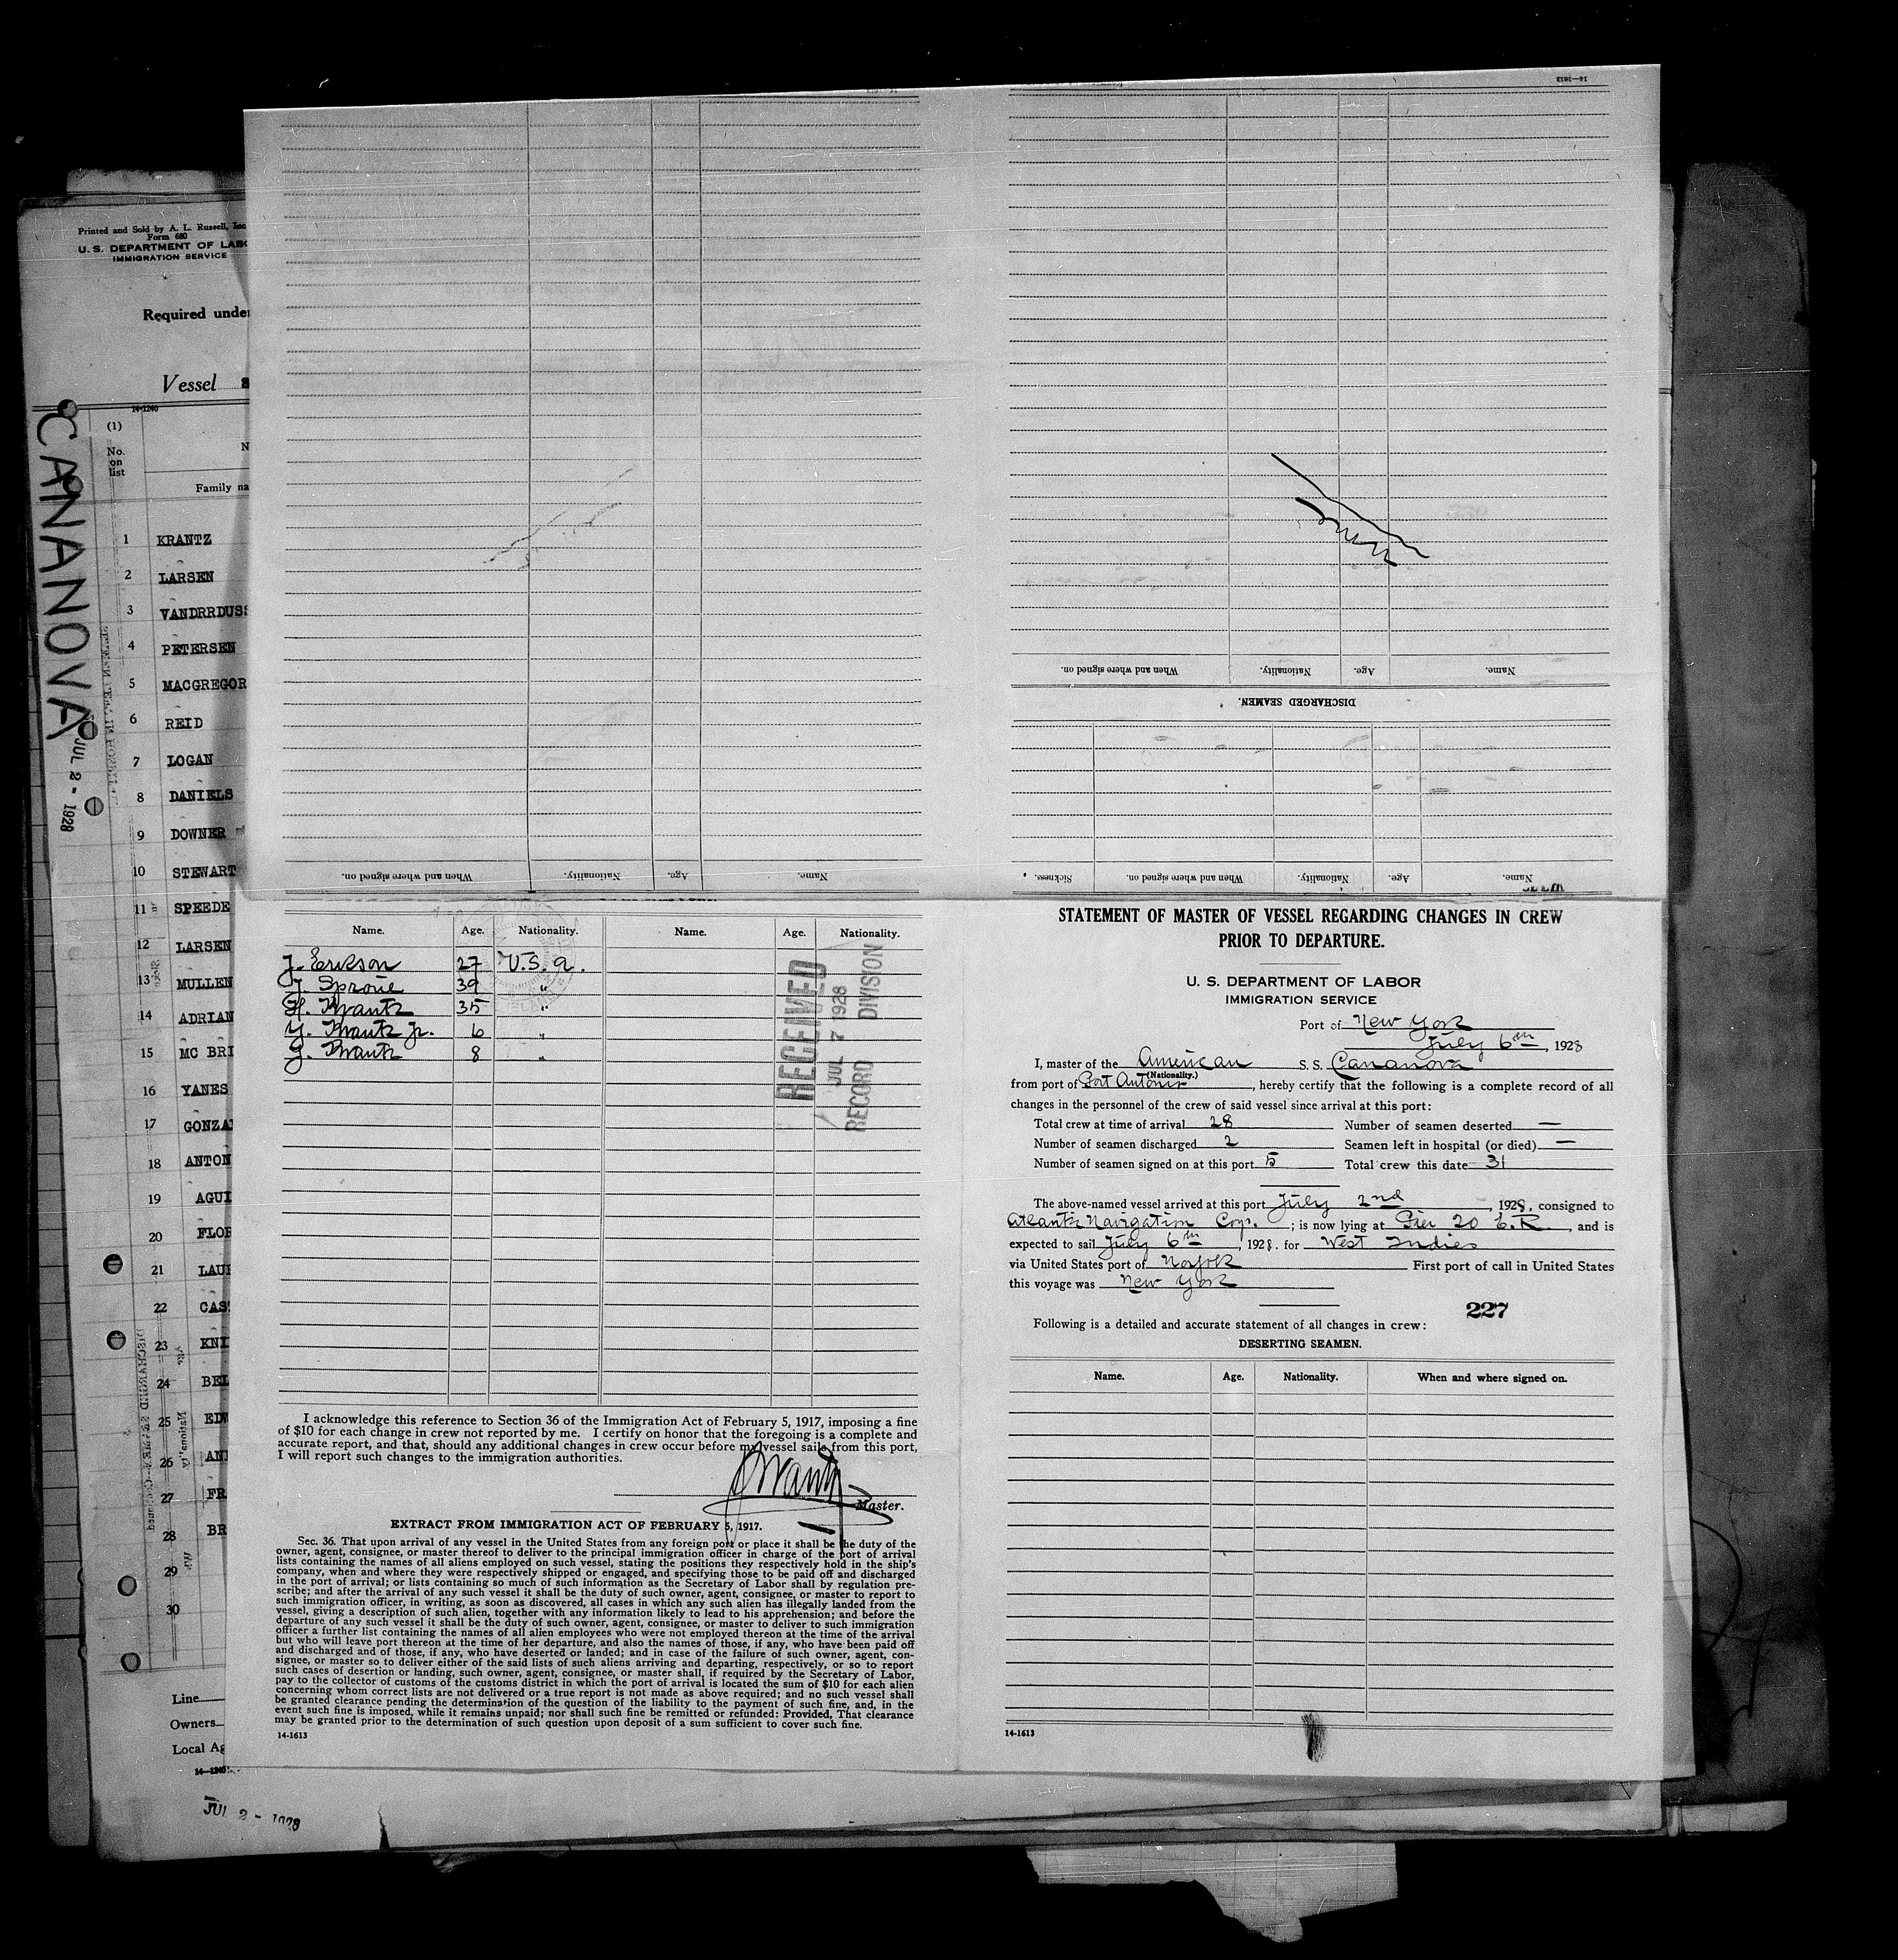 Printed and Sold by A. L. Russell, Inc
Form 680
U. S. DEPARTMENT OF LABO
IMMIGRATION SERVICE
Required under
Vessel
14-1240
(1)
No. on list
Family na
CANANOVA
JUL 2 - 1928
1 KRANTZ
2 LARSEN
3 VANDRRDUSS
4 PETERSEN
5 MACGREGOR
6 REID
7 LOGAN
8 DANIELS
9 DOWNER
10 STEWART
11 SPEEDE
12 LARSEN
13 MULLEN
14 ADRIAN
15 MC BRI
16 YANES
17 GONZA
18 ANTON
19 AGUI
20 FLOR
21 LAU
22 CAS
23 KNI
24 BEL
25 EDW
26 AN
27 FR
28 BR
29
30
Line
Owners
Local Ag
14-1240
JUL 2 - 1928
14-1613
When and where signed on. Nationality. Age. Name.
DISCHARGED SEAMEN.
When and where signed on. Nationality. Age. Name.
Sickness. When and where signed on. Nationality. Age. Name.
Name. Age. Nationality. Name. Age. Nationality.
J. Erikson 27 U.S.a.
J. Sproue 39 "
H. Krantz 35 "
Y. Krantz Jr. 6 "
J. Krantz 8 "
RECEIVED
JUL 7 1928
RECORD DIVISION
I acknowledge this reference to Section 36 of the Immigration Act of February 5, 1917, imposing a fine
of $10 for each change in crew not reported by me. I certify on honor that the foregoing is a complete and
accurate report, and that, should any additional changes in crew occur before my vessel sails from this port,
I will report such changes to the immigration authorities.
Krantz
Master.
EXTRACT FROM IMMIGRATION ACT OF FEBRUARY 5, 1917.
Sec. 36. That upon arrival of any vessel in the United States from any foreign port or place it shall be the duty of the
owner, agent, consignee, or master thereof to deliver to the principal immigration officer in charge of the port of arrival
lists containing the names of all aliens employed on such vessel, stating the positions they respectively hold in the ship's
company, when and where they were respectively shipped or engaged, and specifying those to be paid off and discharged
in the port of arrival; or lists containing so much of such information as the Secretary of Labor shall by regulation pre-
scribe; and after the arrival of any such vessel it shall be the duty of such owner, agent, consignee, or master to report to
such immigration officer, in writing, as soon as discovered, all cases in which any such alien has illegally landed from the
vessel, giving a description of such alien, together with any information likely to lead to his apprehension; and before the
departure of any such vessel it shall be the duty of such owner, agent, consignee, or master to deliver to such immigration
officer a further list containing the names of all alien employees who were not employed thereon at the time of the arrival
but who will leave port thereon at the time of her departure, and also the names of those, if any, who have been paid off
and discharged and of those, if any, who have deserted or landed; and in case of the failure of such owner, agent, con-
signee, or master so to deliver either of the said lists of such aliens arriving and departing, respectively, or so to report
such cases of desertion or landing, such owner, agent, consignee, or master shall, if required by the Secretary of Labor,
pay to the collector of customs of the customs district in which the port of arrival is located the sum of $10 for each alien
concerning whom correct lists are not delivered or a true report is not made as above required; and no such vessel shall
be granted clearance pending the determination of the question of the liability to the payment of such fine, and, in the
event such fine is imposed, while it remains unpaid; nor shall such fine be remitted or refunded: Provided, That clearance
may be granted prior to the determination of such question upon deposit of a sum sufficient to cover such fine.
14-1613
STATEMENT OF MASTER OF VESSEL REGARDING CHANGES IN CREW
PRIOR TO DEPARTURE.
U. S. DEPARTMENT OF LABOR
IMMIGRATION SERVICE
Port of New York
July 6th, 1928
I, master of the American S. S. Cananova
(Nationality.)
from port of Port Antonio, hereby certify that the following is a complete record of all
changes in the personnel of the crew of said vessel since arrival at this port:
Total crew at time of arrival 28 Number of seamen deserted —
Number of seamen discharged 2 Seamen left in hospital (or died) —
Number of seamen signed on at this port 5 Total crew this date 31
The above-named vessel arrived at this port July 2nd, 1928, consigned to
Atlantic Navigation Corp.; is now lying at Pier 20 E.R., and is
expected to sail July 6th, 1928, for West Indies
via United States port of Norfolk First port of call in United States
this voyage was New York
227
Following is a detailed and accurate statement of all changes in crew:
DESERTING SEAMEN.
Name. Age. Nationality. When and where signed on.
14-1613